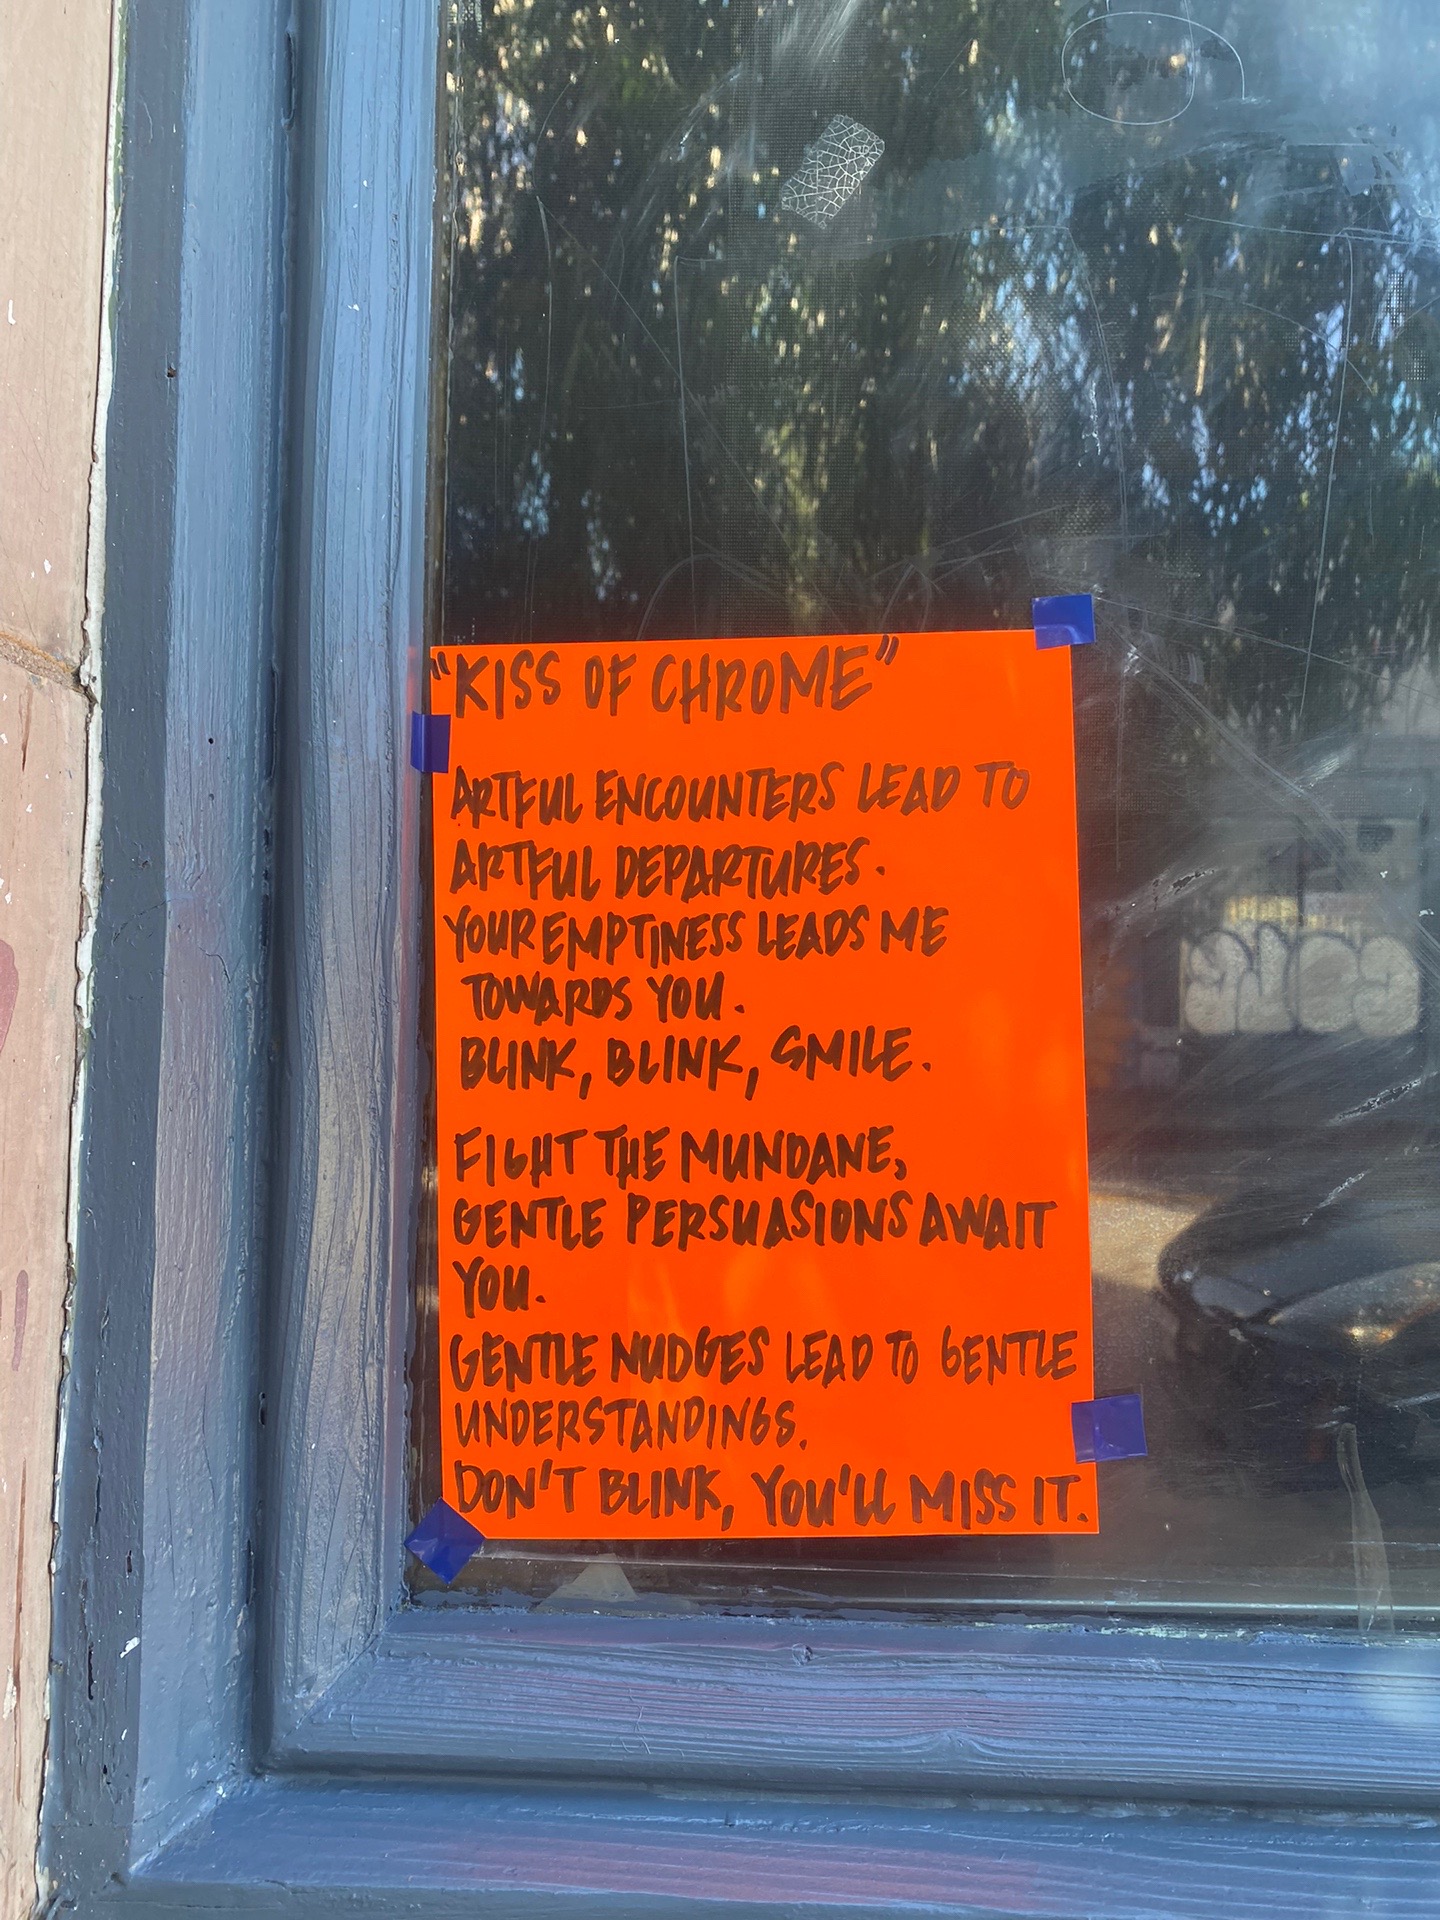 "KISS OF CHROME"
ARTFUL ENCOUNTERS LEAD TO
ARTFUL DEPARTURES.
YOUR EMPTINESS LEADS ME
TOWARDS YOU.
BLINK, BLINK, SMILE.
FIGHT THE MUNDANE,
GENTLE PERSUASIONS AWAIT
YOU.
GENTLE NUDGES LEAD TO GENTLE
UNDERSTANDINGS.
DON'T BLINK, YOU'LL MISS IT.